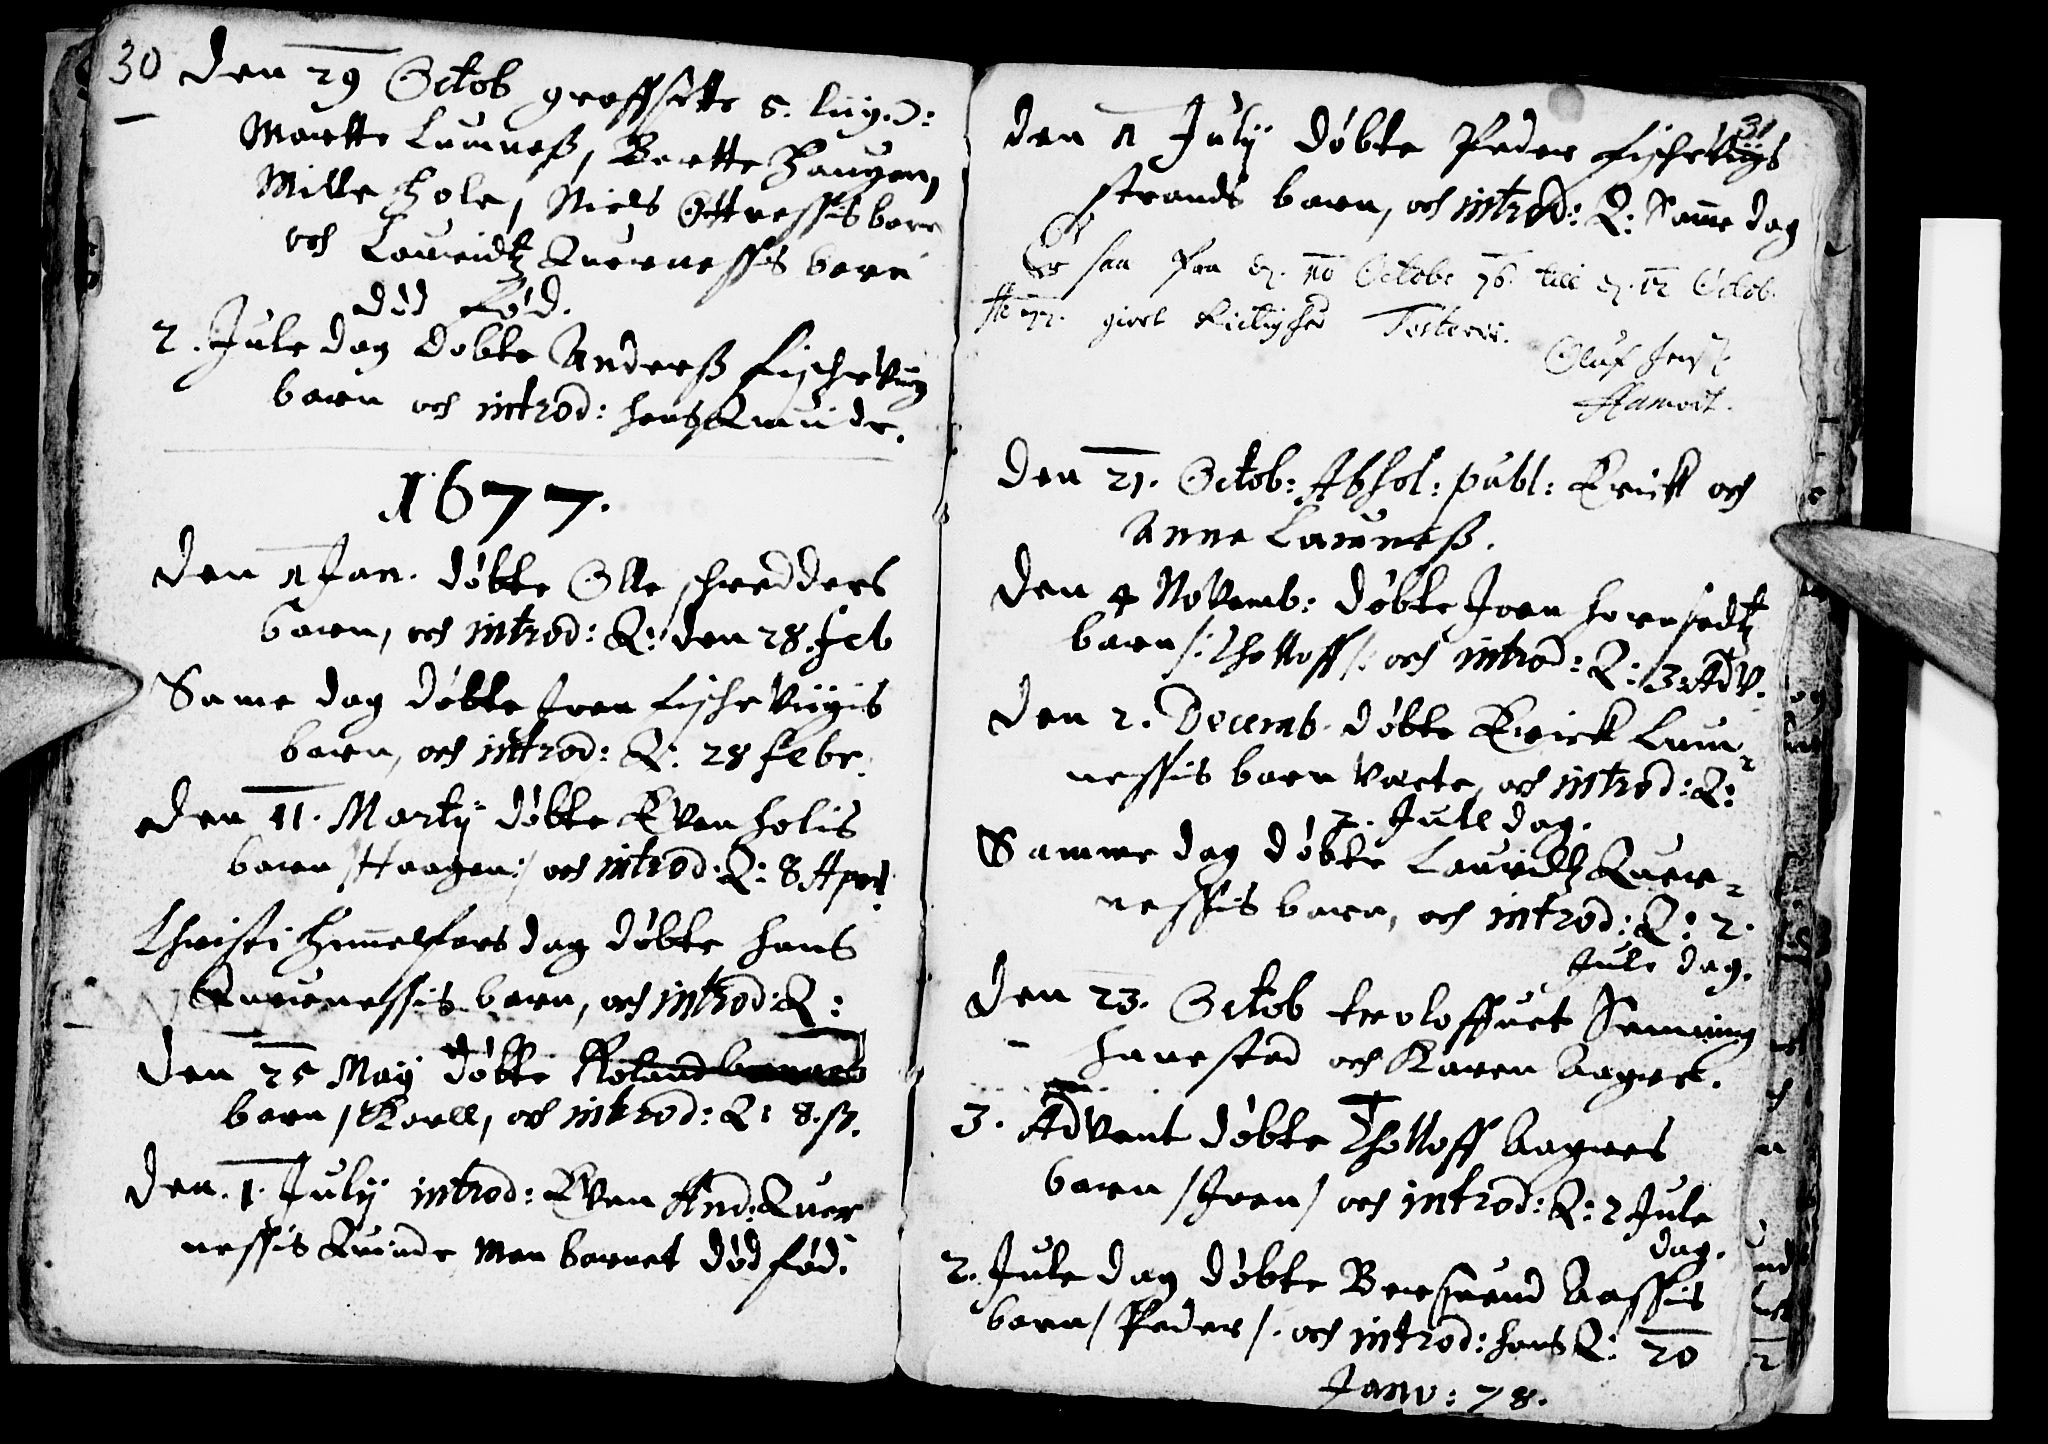 30
den 29 Octob graffsatte 5. liig. ɔ:
Marette Lumneß, Berette Haugen,
Mille Hole, Niels Ottnessis barn
och Lauridtz Quernessis barn
död föd.
2. Jule dag döbte Anderß Fischeviig
barn och introd: hans Quinde.
1677.
den 1 Jan. döbte Olle schredders
barn, och introd: Q: den 28. feb
Same dag döbte Iven Fischeviigis
barn, och introd: Q: 28 febr.
den 11. Martij döbte Even Holis
barn /Haagen:/ och introd: Q: 8 Apr:
Christi Himmelfars dag döbte Hans
Quernessis barn, och introd: Q:
den 25 May döbte Roland
barn / Karll, och introd: Q: 8. p.
den. 1. Julij introd: Even And: Quer
nessis Quinde men barnet död föd.
31
den 1 Julij döbte Peder Fischeviigs
strands barn, och introd: Q: Same dag
Er saa fra d. 10 Octobr 76. till d. 12 Octob.
Ao 77. giort Rictighed Testerer.
Oluf Jens:
Aamodt.
den 21. Octob: Absol: publ: Erick och
Anne Lumneß.
den 4 Novemb: döbte Iven Hornsedtz
barn /: Tholloff /: och introd: Q: 3. Adv.
den 2. Decemb. döbte Erick Lum-
nessis barn Marte, och introd: Q:
2. Jull dag.
Samme dag döbte Lauridtz Quer-
nessis barn, och introd: Q: 2.
Jule dag.
den 23. Octob troloffuet Semming
Hanested och Karen Aagnes.
3. Advent döbte Thølloff Aagnes
barn / Iven / och introd: Q: 2 Jule
dag.
2. Jule dag döbte Bersuend Aassis
barn / Peder /. och introd: hans Q: 20
Janv: 78.